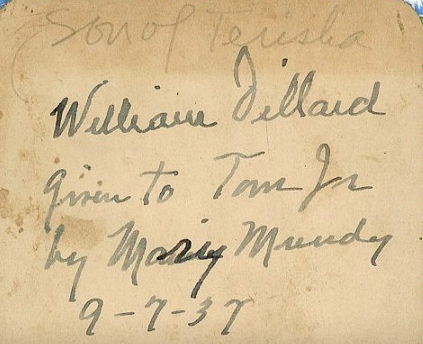 Son of Terisha
William Dillard
given to Tom Jr
by Mary Mundy
9-7-37